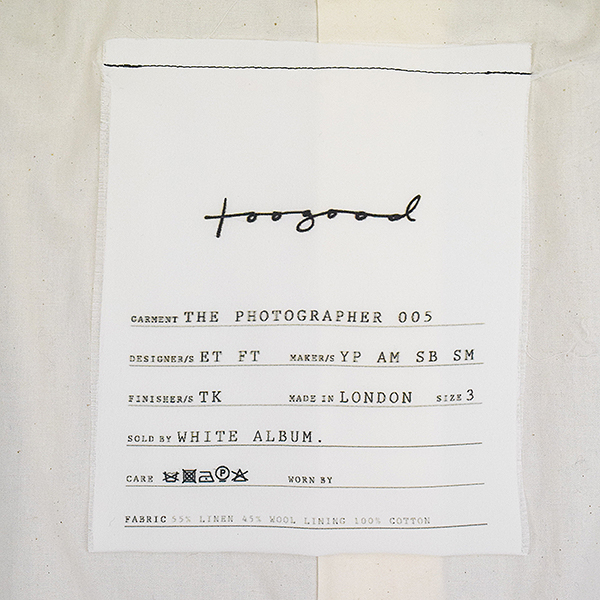 toogood
GARMENT THE PHOTOGRAPHER 005
DESIGNER/S ET FT MAKER/S YP AM SB SM
FINISHER/S TK MADE IN LONDON SIZE 3
SOLD BY WHITE ALBUM.
CARE P WORN BY
FABRIC 55% LINEN 45% WOOL LINING 100% COTTON